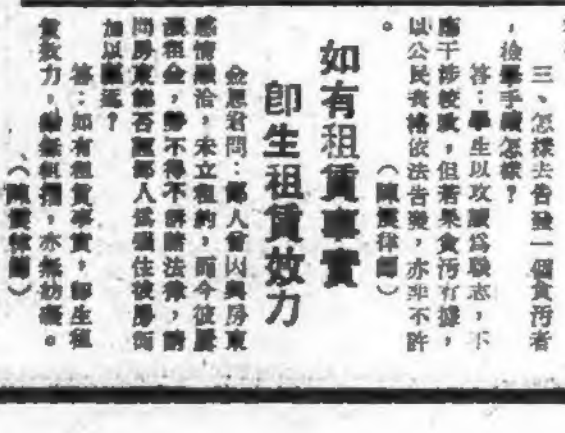 三、怎樣去告發一個貪汚者
，檢舉手續怎樣？
答：學生以攻讀爲職志，不
應干涉校政，但若果貪汚有據，
以公民資格依法告發，亦非不許
。
（陳 律師）
如有租賃事實
卽生租賃效力
金恩君問：鄙人曾因與房東
感情融洽，未立租約，而今彼屢
漲租金，勢不得不訴諸法律，請
問房東能否 鄙人爲 住彼房而
加以 ？
答：如有租賃事實，卽生租
賃效力，縱無租摺，亦無妨礙。
（陳 律師）